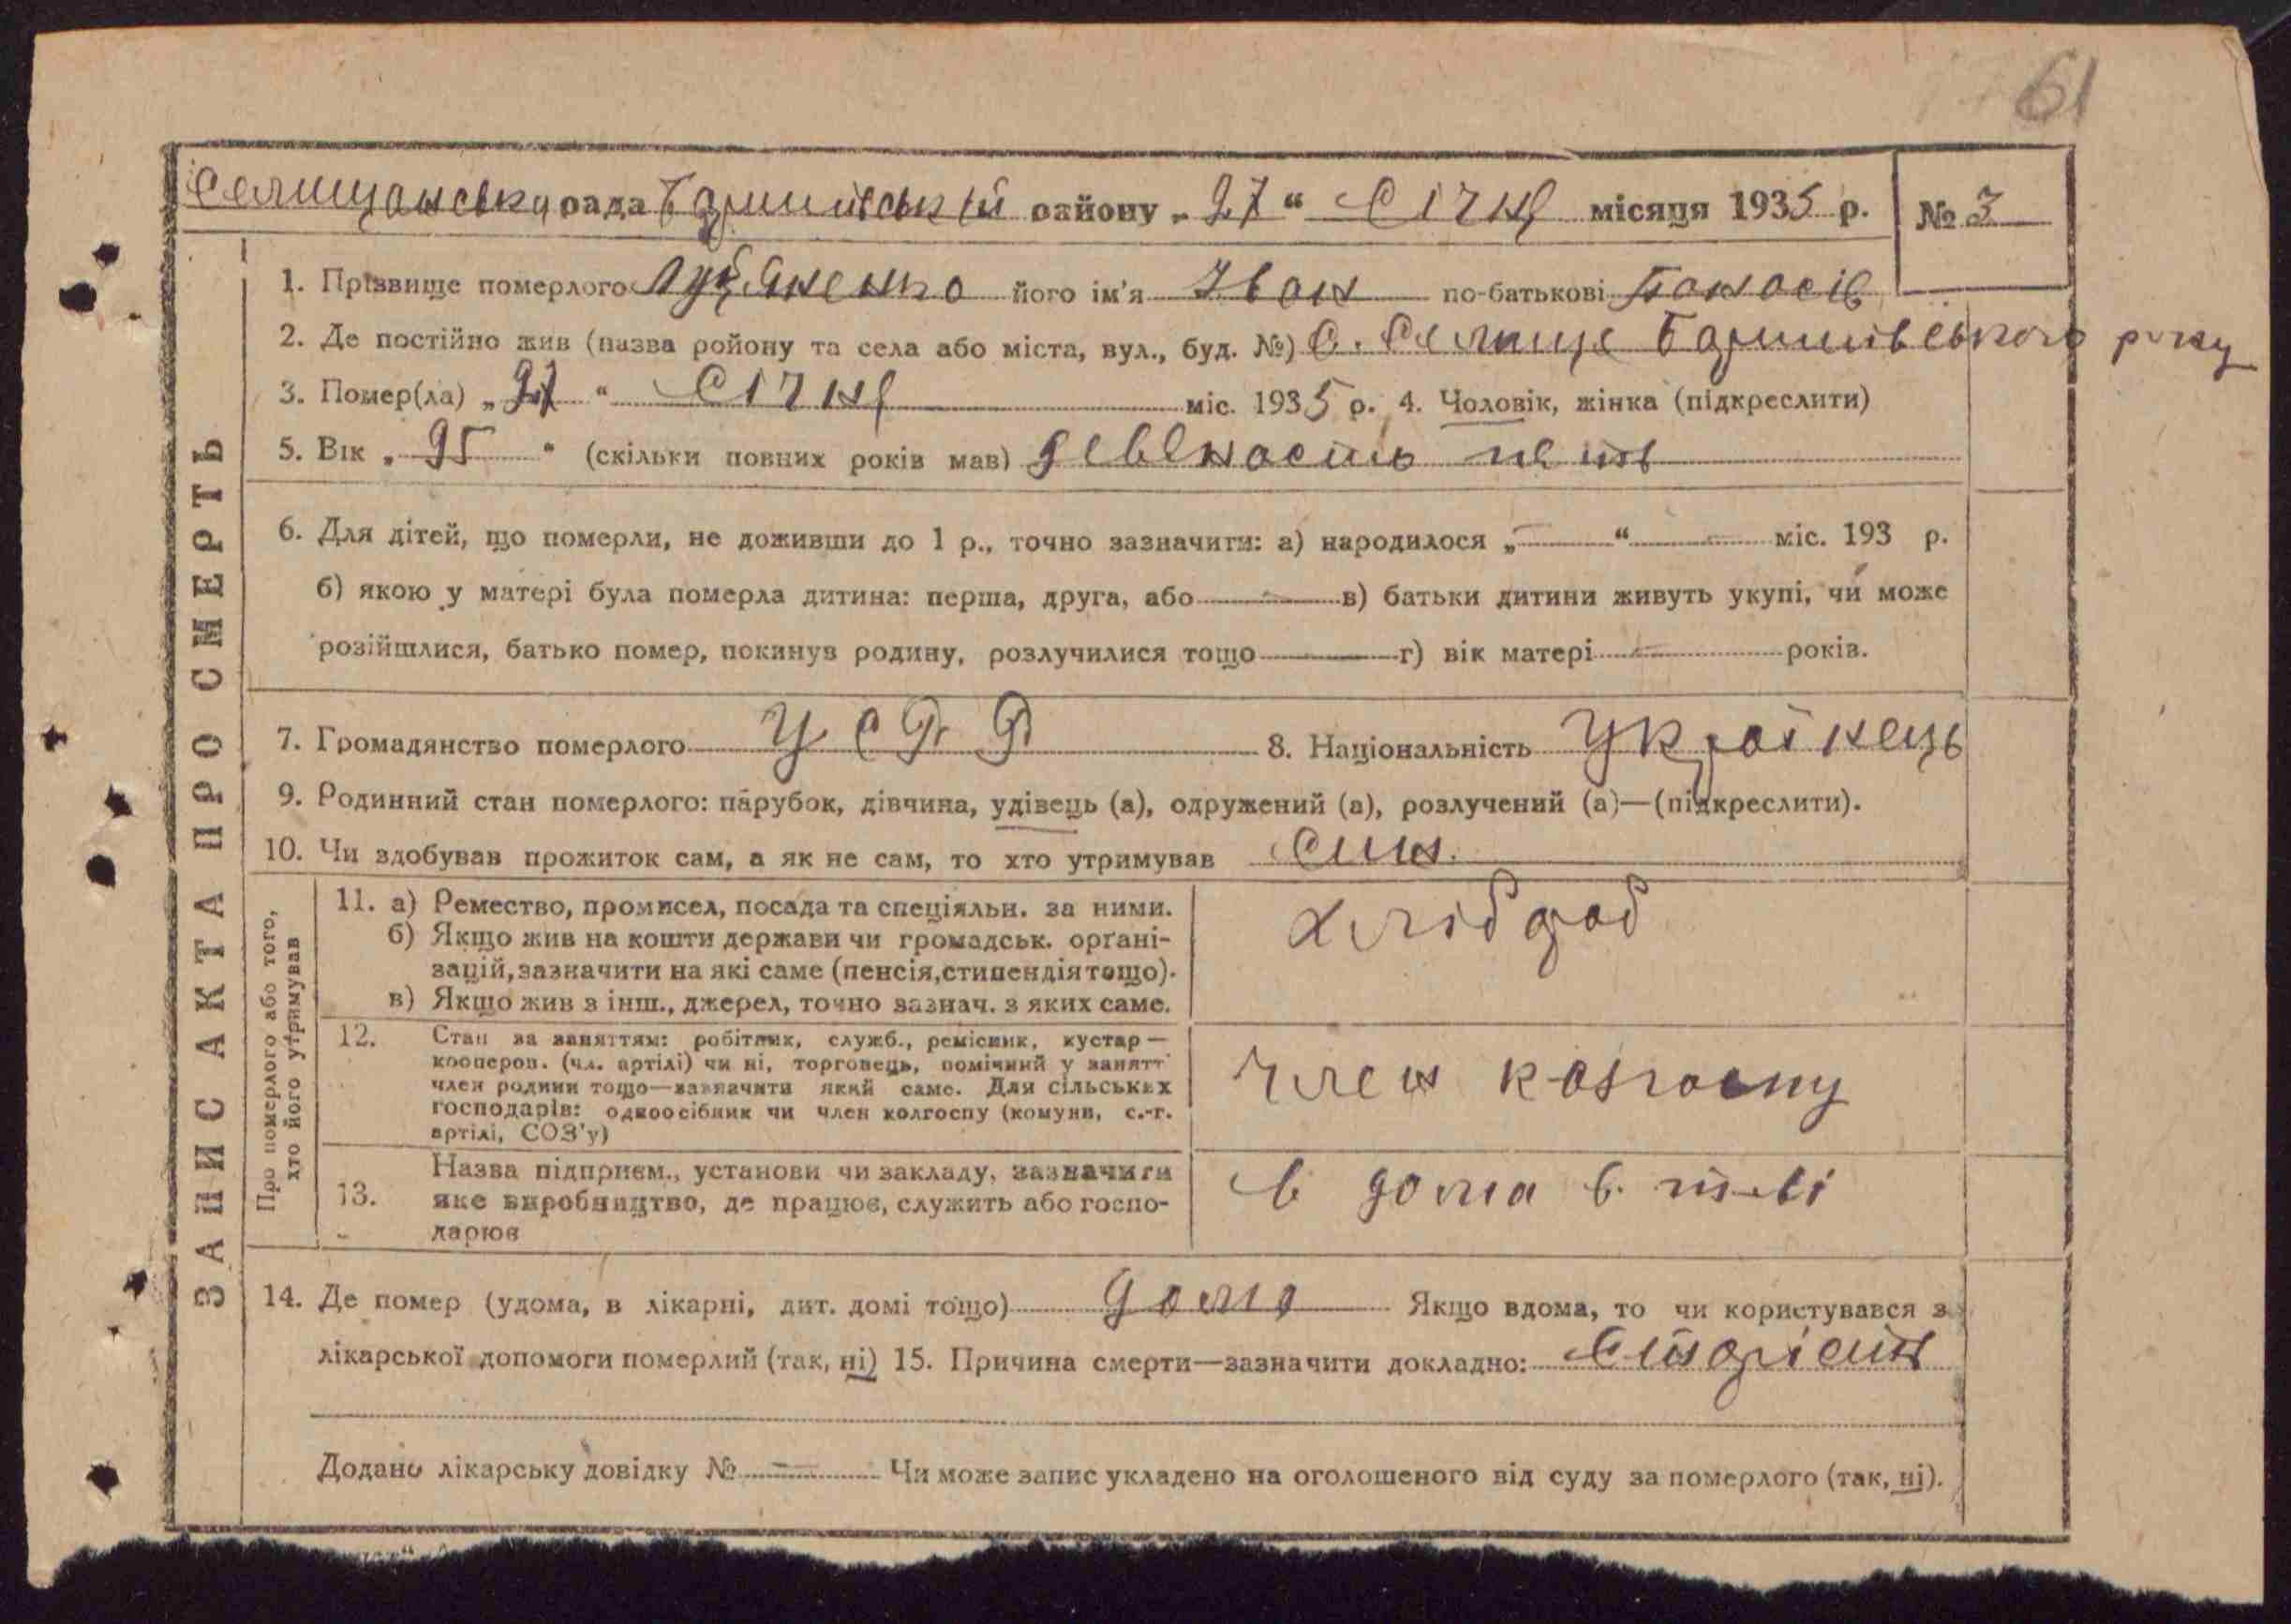 61
Селищанська рада Баришівський району „27“ Січня місяця 1935 р. № 3
ЗАПИС АКТА ПРО СМЕРТЬ
1. Прізвище померлого Луб'яненко його ім'я Іван по-батькові Панасів
2. Де постійно жив (назва ройону та села або міста, вул., буд. №) С. Селище Баришівського р-ну
3. Помер(ла) „27“ Січня міс. 1935 р. 4. Чоловік, жінка (підкреслити)
5. Вік „95“ (скільки повних років мав) девеность пять
6. Для дітей, що померли, не доживши до 1 р., точно зазначити: а) народилося „—“ — міс. 193 р.
б) якою у матері була померла дитина: перша, друга, або — в) батьки дитини живуть укупі, чи може
розійшлися, батько помер, покинув родину, розлучилися тощо — г) вік матері — років.
7. Громадянство померлого УСРР 8. Національність Українець
9. Родинний стан померлого: парубок, дівчина, удівець (а), одружений (а), розлучений (а)—(підкреслити).
10. Чи здобував прожиток сам, а як не сам, то хто утримував Син.
Про померлого або того,
хто його утримував
11. а) Ремество, промисел, посада та спеціяльн. за ними.
б) Якщо жив на кошти держави чи громадськ. орґані-
зацій, зазначити на які саме (пенсія, стипендія тощо).
в) Якщо жив з інш., джерел, точно зазнач. з яких саме.
хлібороб
12. Стан за заняттям: робітник, служб., ремісник, кустар—
кооперов. (чл. артілі) чи ні, торговець, помічний у занятт
член родини тощо—зазначити який саме. Для сільських
господарів: одноосібник чи член колгоспу (комуни, с.-г.
артілі, СОЗ'у)
член колгоспу
13. Назва підприєм., установи чи закладу, зазначити
яке виробництво, де працює, служить або госпо-
дарює
в дома в
14. Де помер (удома, в лікарні, дит. домі тощо) дома Якщо вдома, то чи користувався з
лікарської допомоги померлий (так, ні) 15. Причина смерти—зазначити докладно: Старість
Додано лікарську довідку № — Чи може запис укладено на оголошеного від суду за померлого (так, ні).